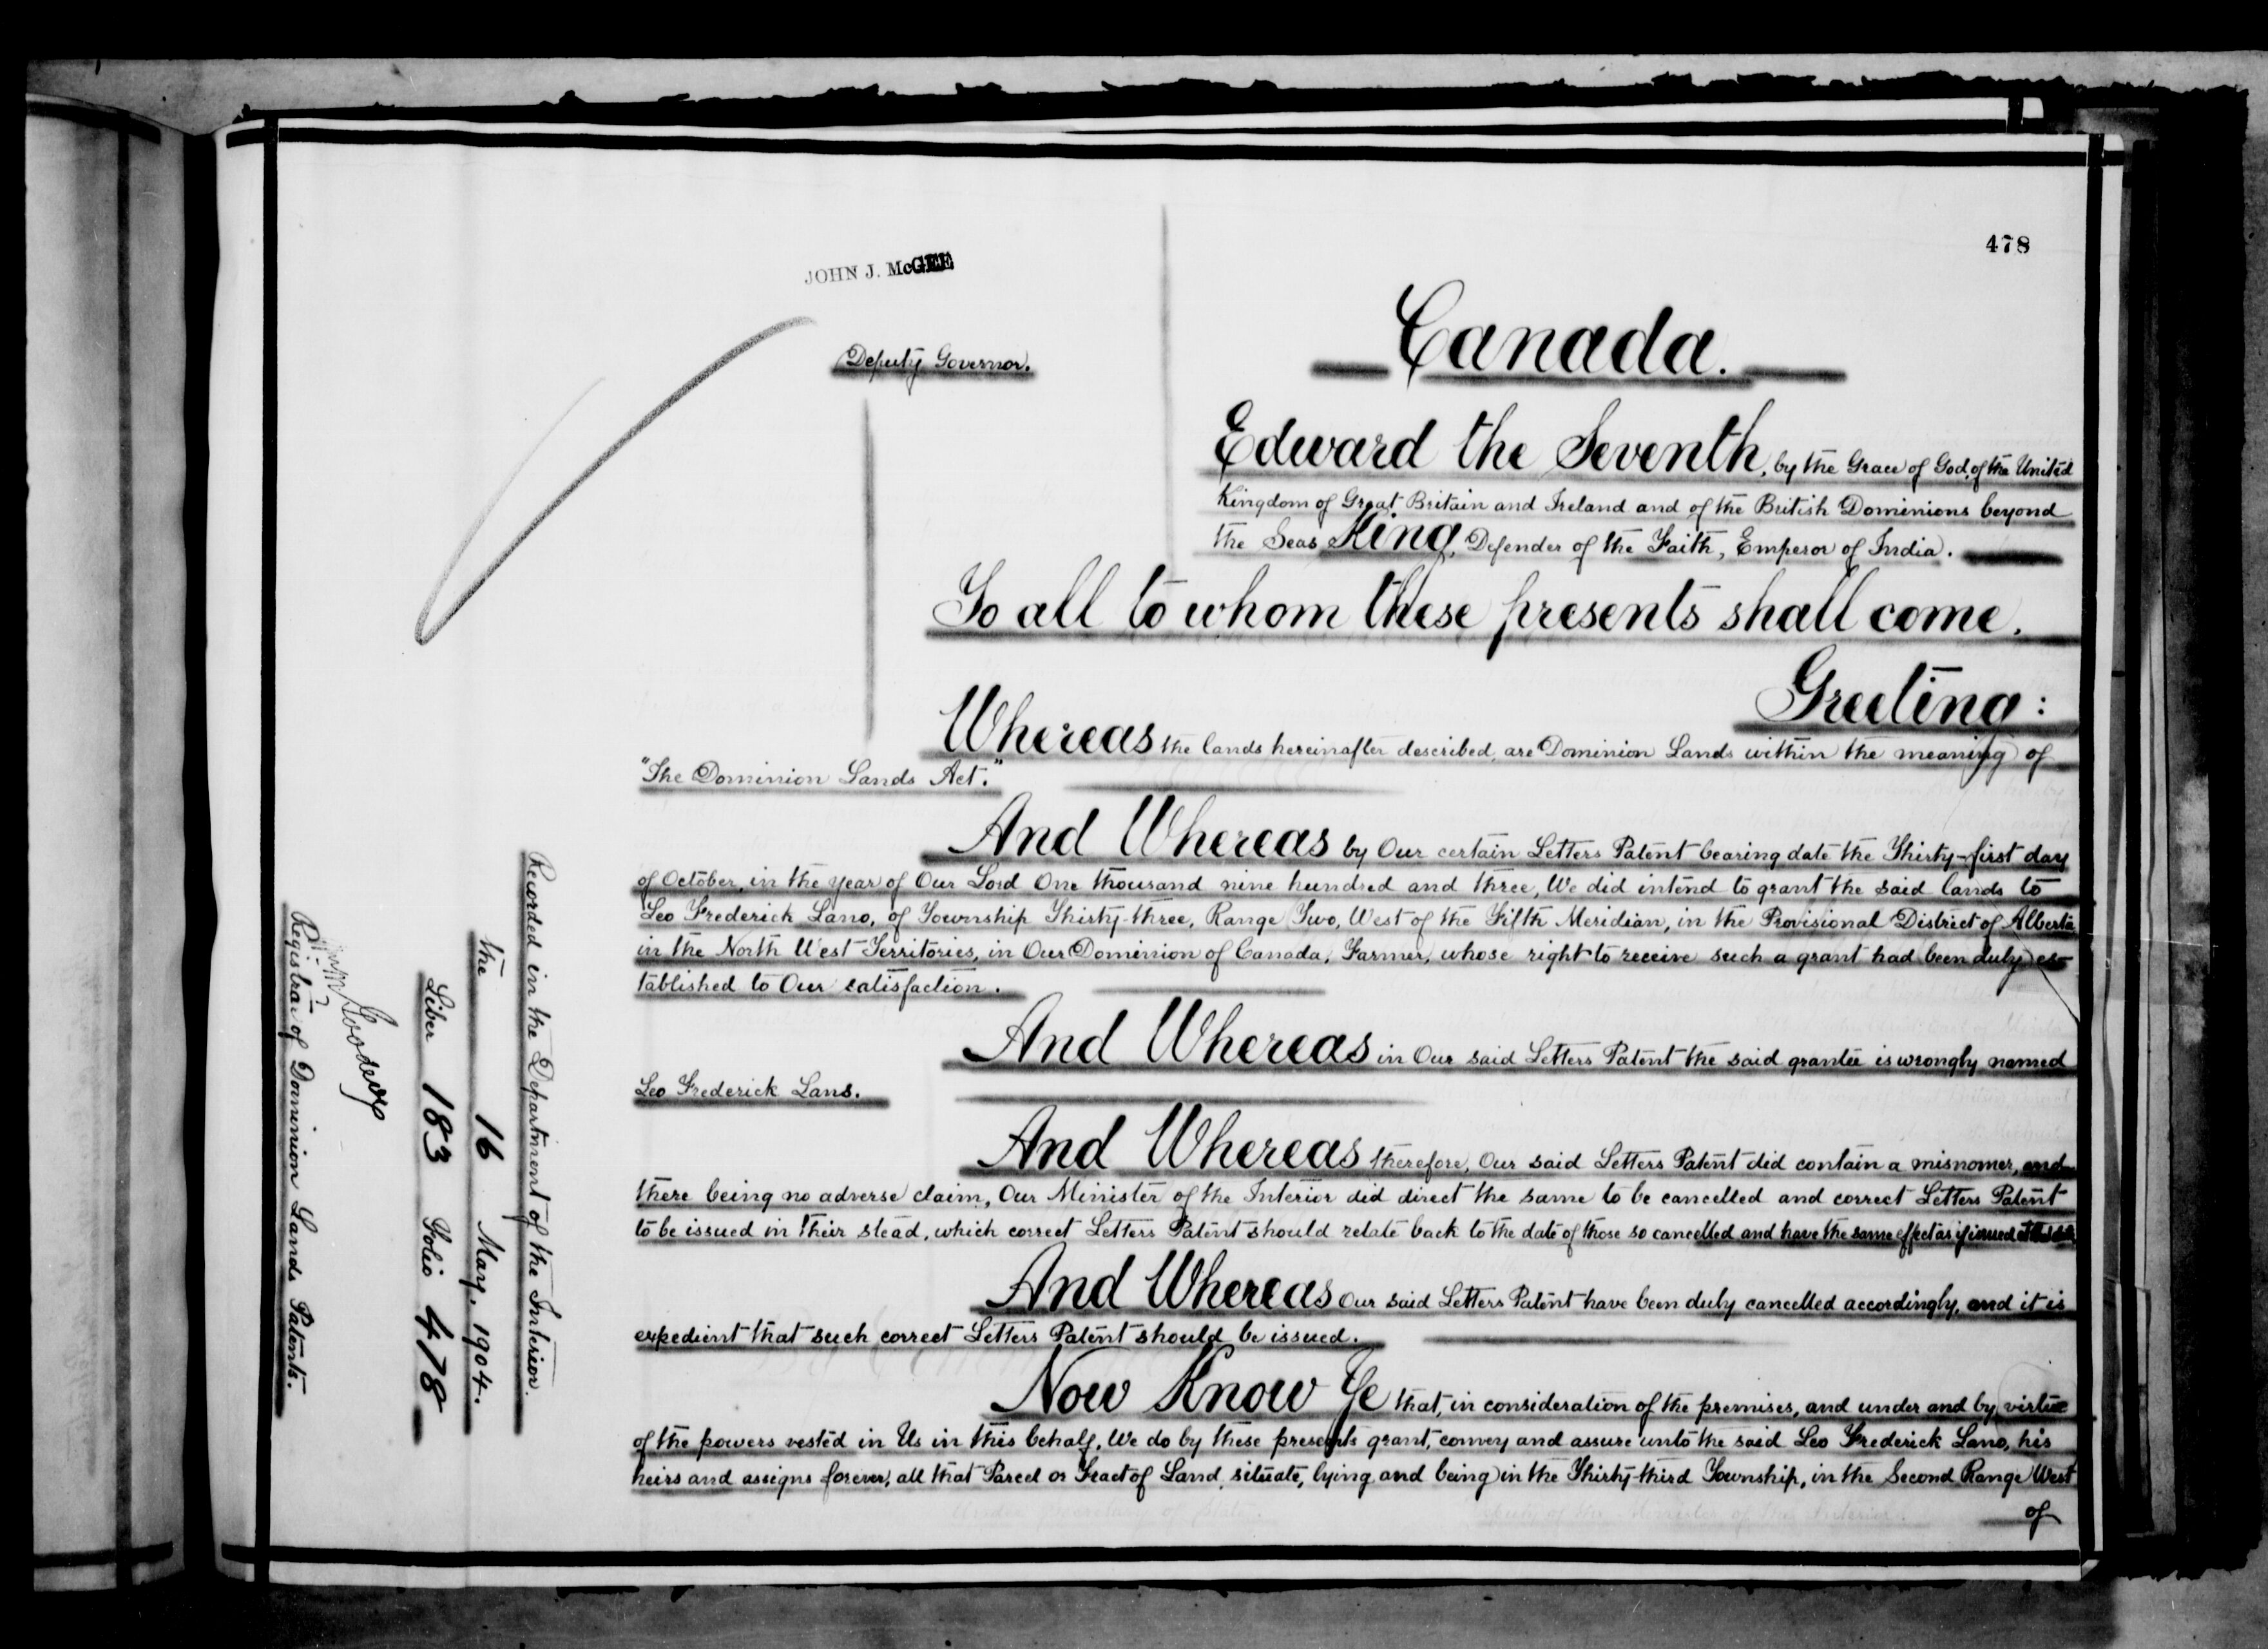 478
JOHN J. McGEE
Deputy Governor.
Canada.
Edward the Seventh, by the Grace of God, of the United
Kingdom of Great Britain and Ireland and of the British Dominions beyond
the Seas King, Defender of the Faith, Emperor of India.
To all to whom these presents shall come,
Greeting:
Whereas the lands hereinafter described, are Dominion Lands within the meaning of
"The Dominion Lands Act."
And Whereas by Our certain Letters Patent bearing date the Thirty-first day
of October, in the year of Our Lord One thousand nine hundred and three, We did intend to grant the said lands to
Leo Frederick Lano, of Township Thirty-three, Range Two, West of the Fifth Meridian, in the Provisional District of Alberta
in the North West Territories, in Our Dominion of Canada, Farmer, whose right to receive such a grant had been duly es-
tablished to Our satisfaction.
And Whereas in Our said Letters Patent the said grantee is wrongly named
Leo Frederick Lans.
And Whereas therefore, Our said Letters Patent did contain a misnomer, and
there being no adverse claim, Our Minister of the Interior did direct the same to be cancelled and correct Letters Patent
to be issued in their stead, which correct Letters Patent should relate back to the date of those so cancelled and have the same effect as if issued at
And Whereas Our said Letters Patent have been duly cancelled accordingly, and it is
expedient that such correct Letters Patent should be issued.
Now Know Ye that, in consideration of the premises, and under and by virtue
of the powers vested in Us in this behalf, We do by these presents grant, convey and assure unto the said Leo Frederick Lano, his
heirs and assigns forever, all that Parcel or Tract of Land, situate, lying and being in the Thirty-third Township, in the Second Range West
of
Recorded in the Department of the Interior.
the 16 May, 1904.
Liber 183 Folio 478
Goodeve
Registrar of Dominion Lands Patents.